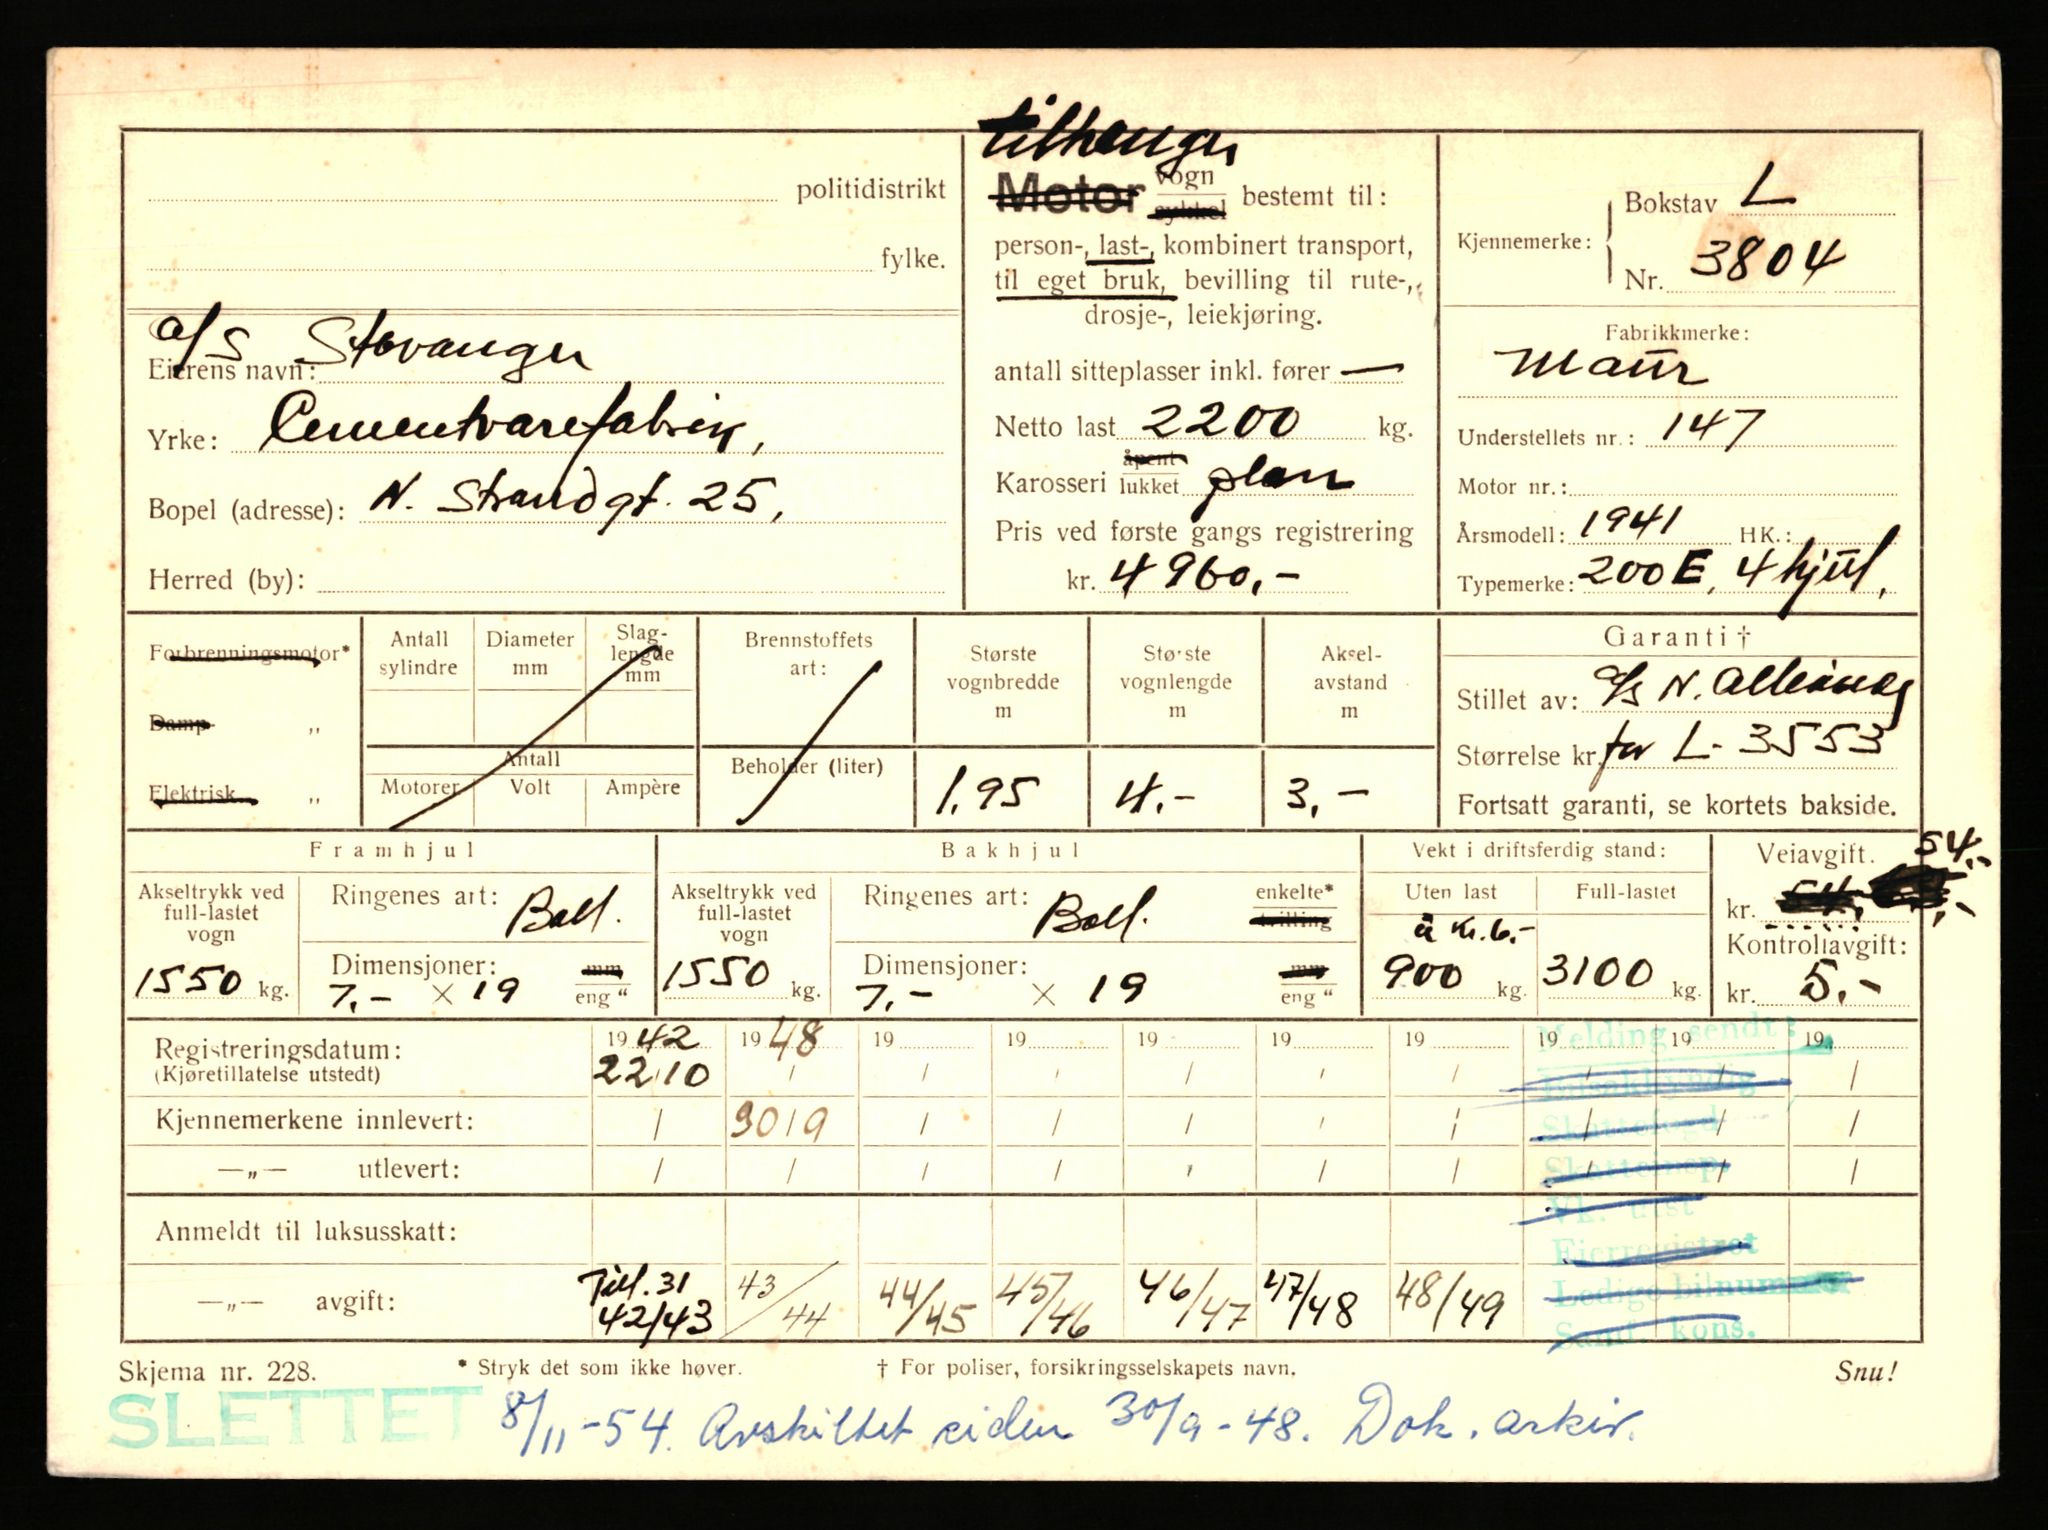 tilhenger
politidistrikt
fylke.
a/s Stavanger
Eierens navn:
Yrke: Cementvarefabrik,
Bopel (adresse): N. Strandgt. 25,
Herred (by):
Motor vogn
sykkel bestemt til:
person-, last-, kombinert transport,
til eget bruk, bevilling til rute-,
drosje-, leiekjøring.
antall sitteplasser inkl. fører —
Netto last 2200 kg.
Karosseri åpent
lukket plan
Pris ved første gangs registrering
kr. 4960,-
Kjennemerke: Bokstav L
Nr. 3804
Fabrikkmerke:
Maur
Understellets nr.: 147
Motor nr.:
Årsmodell: 1941 HK.:
Typemerke: 200E, 4 hjul,
Forbrenningsmotor*
Damp „
Elektrisk „
Antall sylindre
Diameter mm
Slaglengde mm
Antall
Motorer Volt Ampère
Brennstoffets art:
Beholder (liter)
Største vognbredde m
1,95
Største vognlengde m
4.-
Akselavstand m
3,-
Garanti †
Stillet av: a/s N. Alliance
Størrelse kr. for L- 3553
Fortsatt garanti, se kortets bakside.
Framhjul
Akseltrykk ved full-lastet vogn
1550 kg.
Ringenes art: Ball.
Dimensjoner: mm
7,- × 19 eng "
Bakhjul
Akseltrykk ved full-lastet vogn
1550 kg.
Ringenes art: Ball. enkelte*
tvilling
Dimensjoner: mm
7,- × 19 eng "
Vekt i driftsferdig stand:
Uten last Full-lastet
à Kr. 6,-
900 kg. 3100 kg.
Veiavgift. 54,-
kr. 54,
Kontrollavgift:
kr. 5.-
Registreringsdatum: 1942 1948 19 19 19 19 19 19 19 19
(Kjøretillatelse utstedt) 22/10
Kjennemerkene innlevert: 30/9
—„— utlevert:
Anmeldt til luksusskatt:
—„— avgift: Till. 31 42/43 43/44 44/45 45/46 46/47 47/48 48/49
Melding sendt:
Bilsakkyndig
Skattefogd
Skatteinsp.
Vk. utst
Eierregistret
Ledige bilnummer
Samf. kons.
Skjema nr. 228. * Stryk det som ikke høver. † For poliser, forsikringsselskapets navn. Snu!
SLETTET 8/11-54. Avskiltet siden 30/9-48. Dok. arkiv.